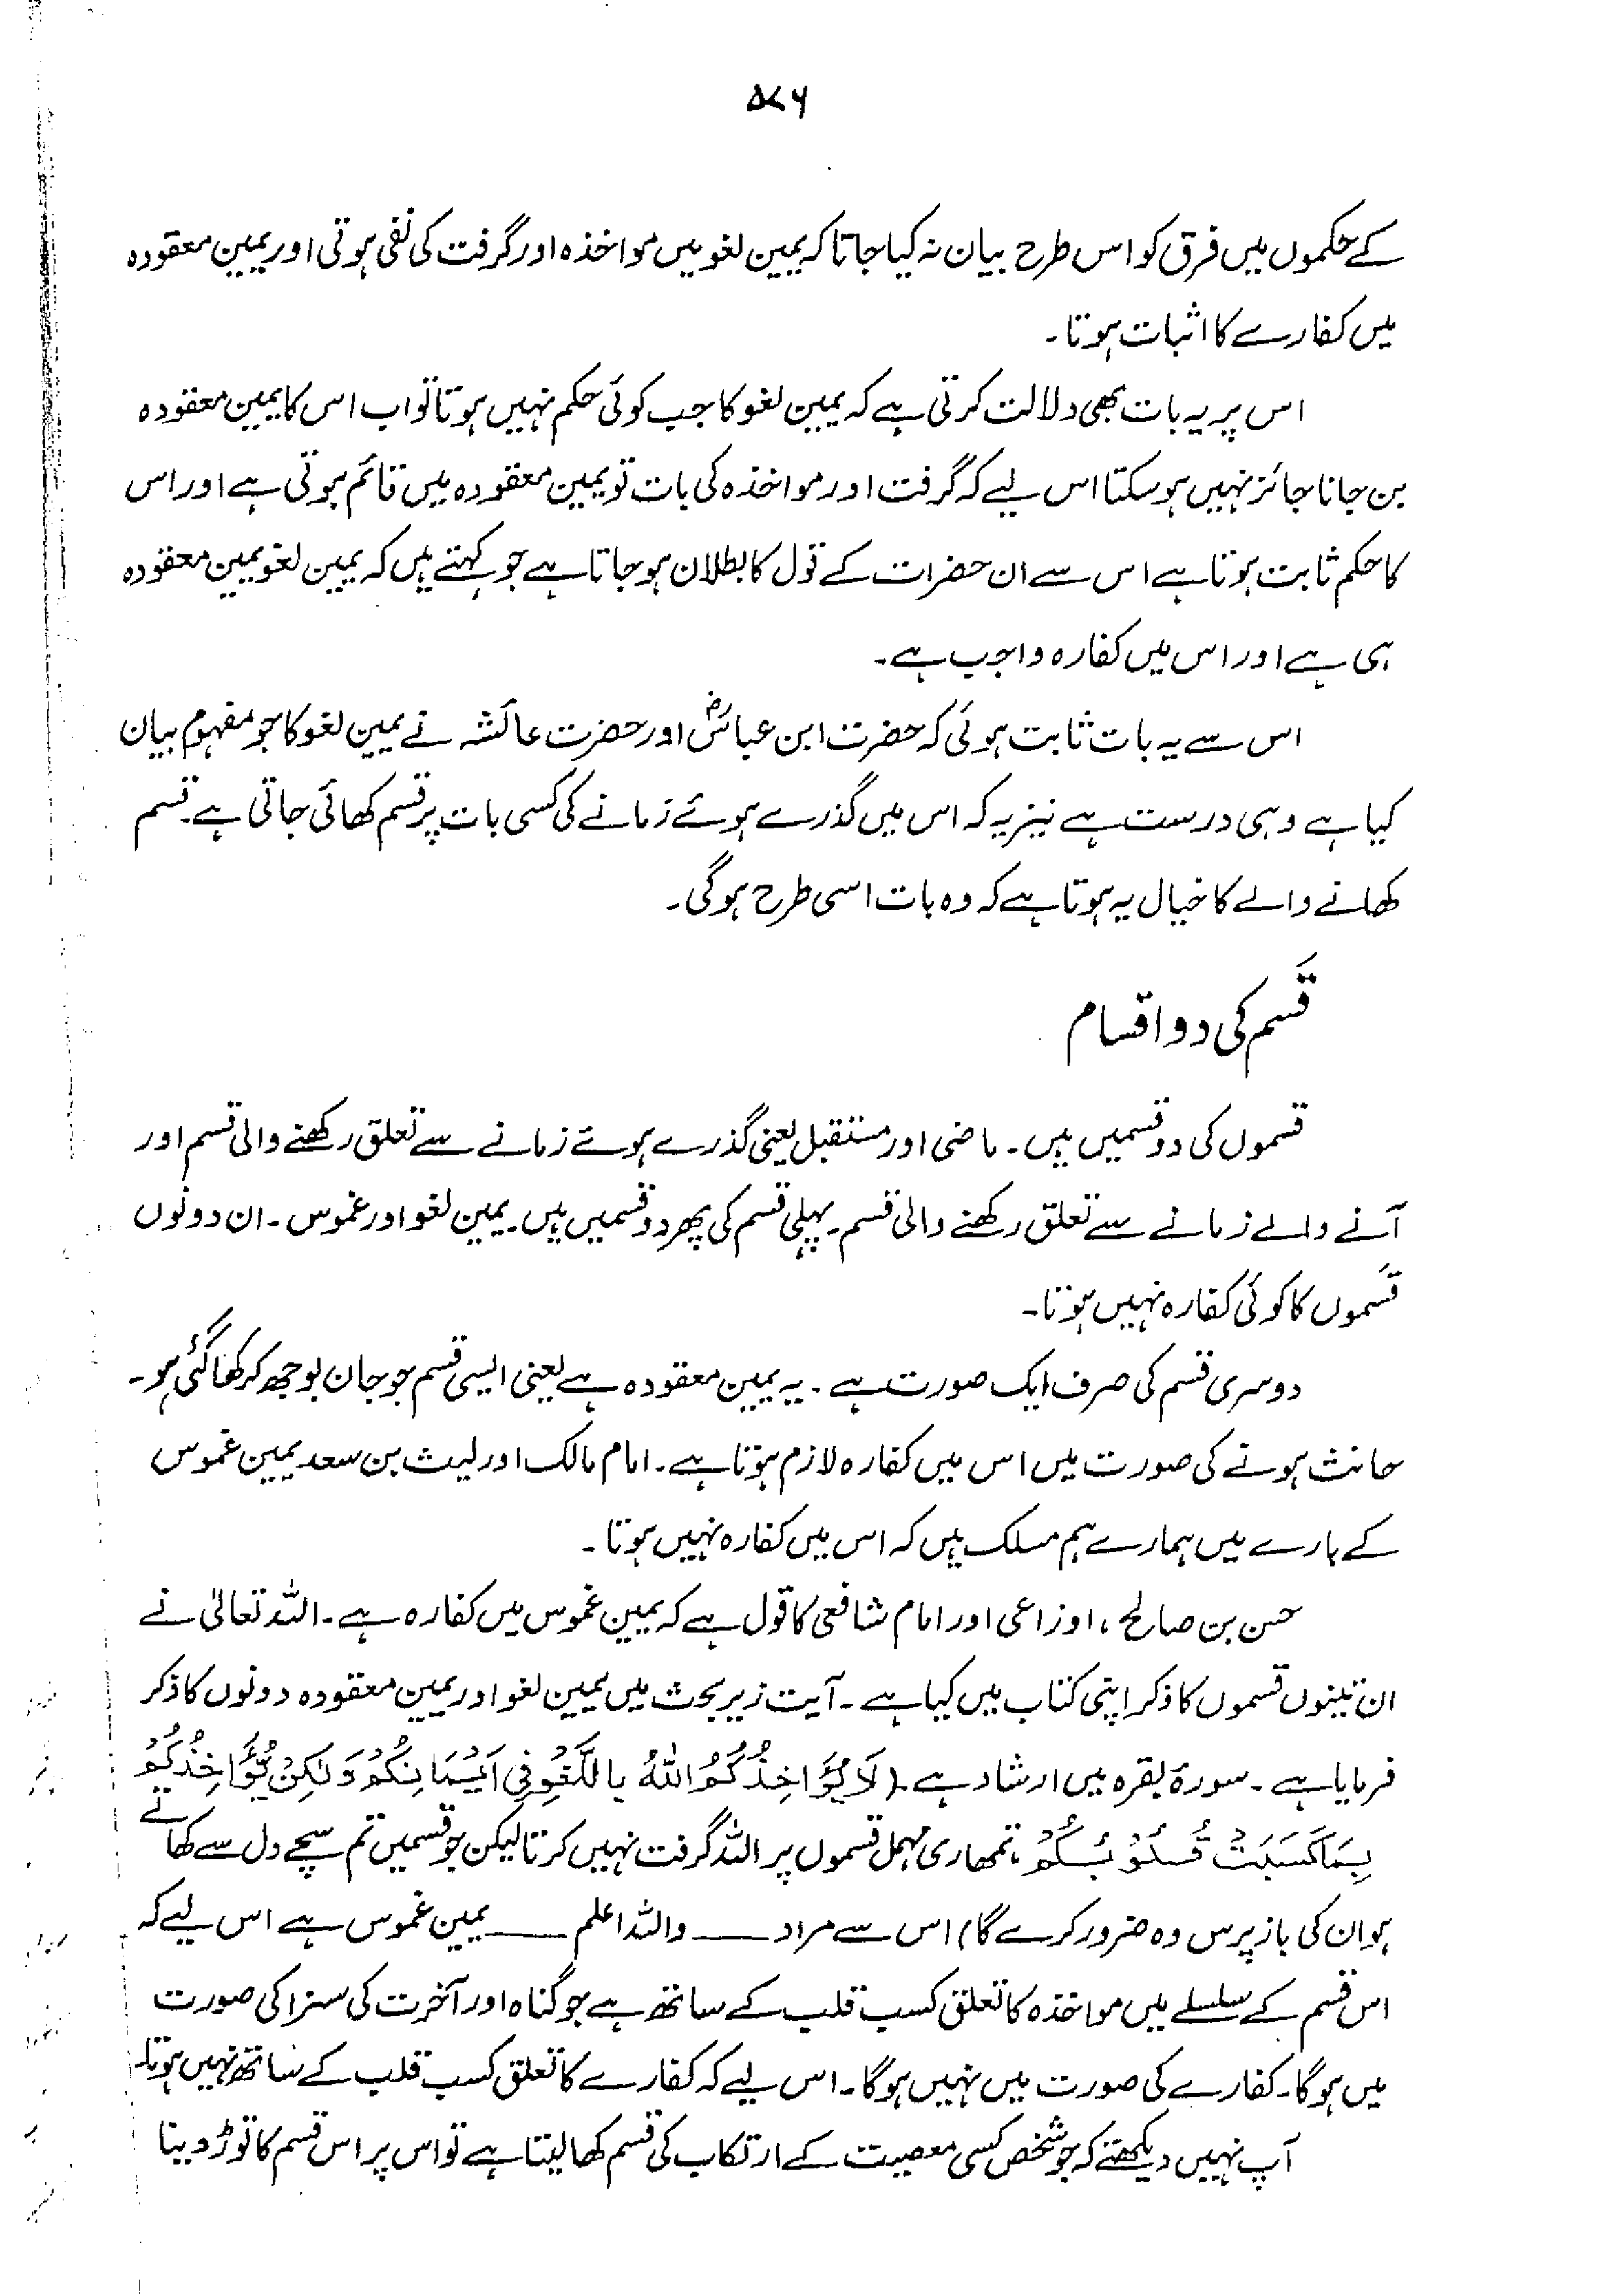 ۵۷۶
کے حکموں میں فرق کو اس طرح بیان نہ کیا جاتا کہ یمین لغو میں مواخذہ اور گرفت کی نفی ہوتی اور یمین معقودہ
میں کفارے کا اثبات ہوتا۔
اس پر یہ بات بھی دلالت کرتی ہے کہ یمین لغو کا جب کوئی حکم نہیں ہوتا تو اب اس کا یمین معقودہ
بن جانا جائز نہیں ہو سکتا اس لیے کہ گرفت اور مواخذہ کی بات تو یمین معقودہ میں قائم ہوتی ہے اور اس
کا حکم ثابت ہوتا ہے اس سے ان حضرات کے قول کا بطلان ہو جاتا ہے جو کہتے ہیں کہ یمین لغو یمین معقودہ
ہی ہے اور اس میں کفارہ واجب ہے۔
اس سے یہ بات ثابت ہوئی کہ حضرت ابن عباسؓ اور حضرت عائشہ نے یمین لغو کا جو مفہوم بیان
کیا ہے وہی درست ہے نیز یہ کہ اس میں گذرے ہوئے زمانے کی کسی بات پر قسم کھائی جاتی ہے۔ قسم
کھانے والے کا خیال یہ ہوتا ہے کہ وہ بات اسی طرح ہو گی۔
قَسم کی دو اقسام
قسموں کی دو قسمیں ہیں۔ ماضی اور مستقبل یعنی گذرے ہوئے زمانے سے تعلق رکھنے والی قسم اور
آنے والے زمانے سے تعلق رکھنے والی قسم۔ پہلی قسم کی پھر دو قسمیں ہیں۔ یمین لغو اور غموس۔ ان دونوں
قَسموں کا کوئی کفارہ نہیں ہوتا۔
دوسری قسم کی صرف ایک صورت ہے۔ یہ یمین معقودہ ہے یعنی ایسی قسم جو جان بوجھ کر کھا گئی ہو۔
حانث ہونے کی صورت میں اس میں کفارہ لازم ہوتا ہے۔ امام مالک اور لیث بن سعد یمین غموس
کے بارے میں ہمارے ہم مسلک ہیں کہ اس میں کفارہ نہیں ہوتا۔
حسن بن صالح، اوزاعی اور امام شافعی کا قول ہے کہ یمین غموس میں کفارہ ہے۔ اللہ تعالیٰ نے
ان تینوں قسموں کا ذکر اپنی کتاب میں کیا ہے۔ آیت زیر بحث میں یمین لغو اور یمین معقودہ دونوں کا ذکر
فرمایا ہے۔ سورۃ بقرہ میں ارشاد ہے۔ (لَا یُؤَاخِذُکُمُ اللّٰهُ بِاللَّغْوِ فِیْ اَیْمَانِکُمْ وَلٰکِنْ یُّؤَاخِذُکُمْ
بِمَا کَسَبَتْ قُلُوْبُکُمْ، تمھاری مہمل قسموں پر اللہ گرفت نہیں کرتا لیکن جو قسمیں تم سچے دل سے کھاتے
ہو ان کی باز پرس وہ ضرور کرے گا) اس سے مراد ـــــ واللہ اعلم ـــــ یمین غموس ہے اس لیے کہ
اس قسم کے سلسلے میں مواخذہ کا تعلق کسب قلب کے ساتھ ہے جو گناہ اور آخرت کی سزا کی صورت
میں ہو گا۔ کفارے کی صورت میں نہیں ہو گا۔ اس لیے کہ کفارے کا تعلق کسب قلب کے ساتھ نہیں ہوتا۔
آپ نہیں دیکھتے کہ جو شخص کسی معصیت کے ارتکاب کی قسم کھا لیتا ہے تو اس پر اس قسم کا توڑ دینا